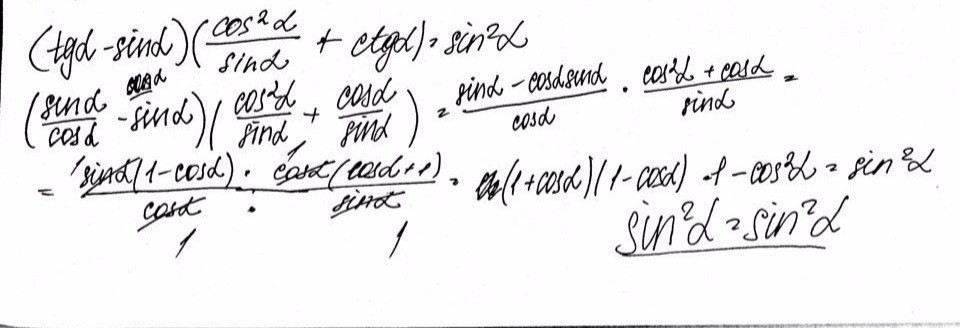 (tgα - sinα)(cos²α/sinα + ctgα) = sin²α
(sinα/cosα - sinα)(cos²α/sinα + cosα/sinα) = sinα - cosα sinα/cosα · cos²α + cosα/sinα =
= sinα(1 - cosα)/cosα · cosα(cosα + 1)/sinα = (1 + cosα)(1 - cosα) = 1 - cos²α = sin²α
sin²α = sin²α